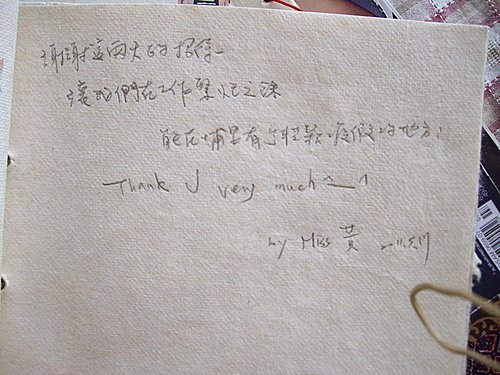 謝謝這兩天的招待~
讓我們在工作繁忙之餘
能在埔里有 渡假的地方!
Thank U very much ^__^
by Miss 黃